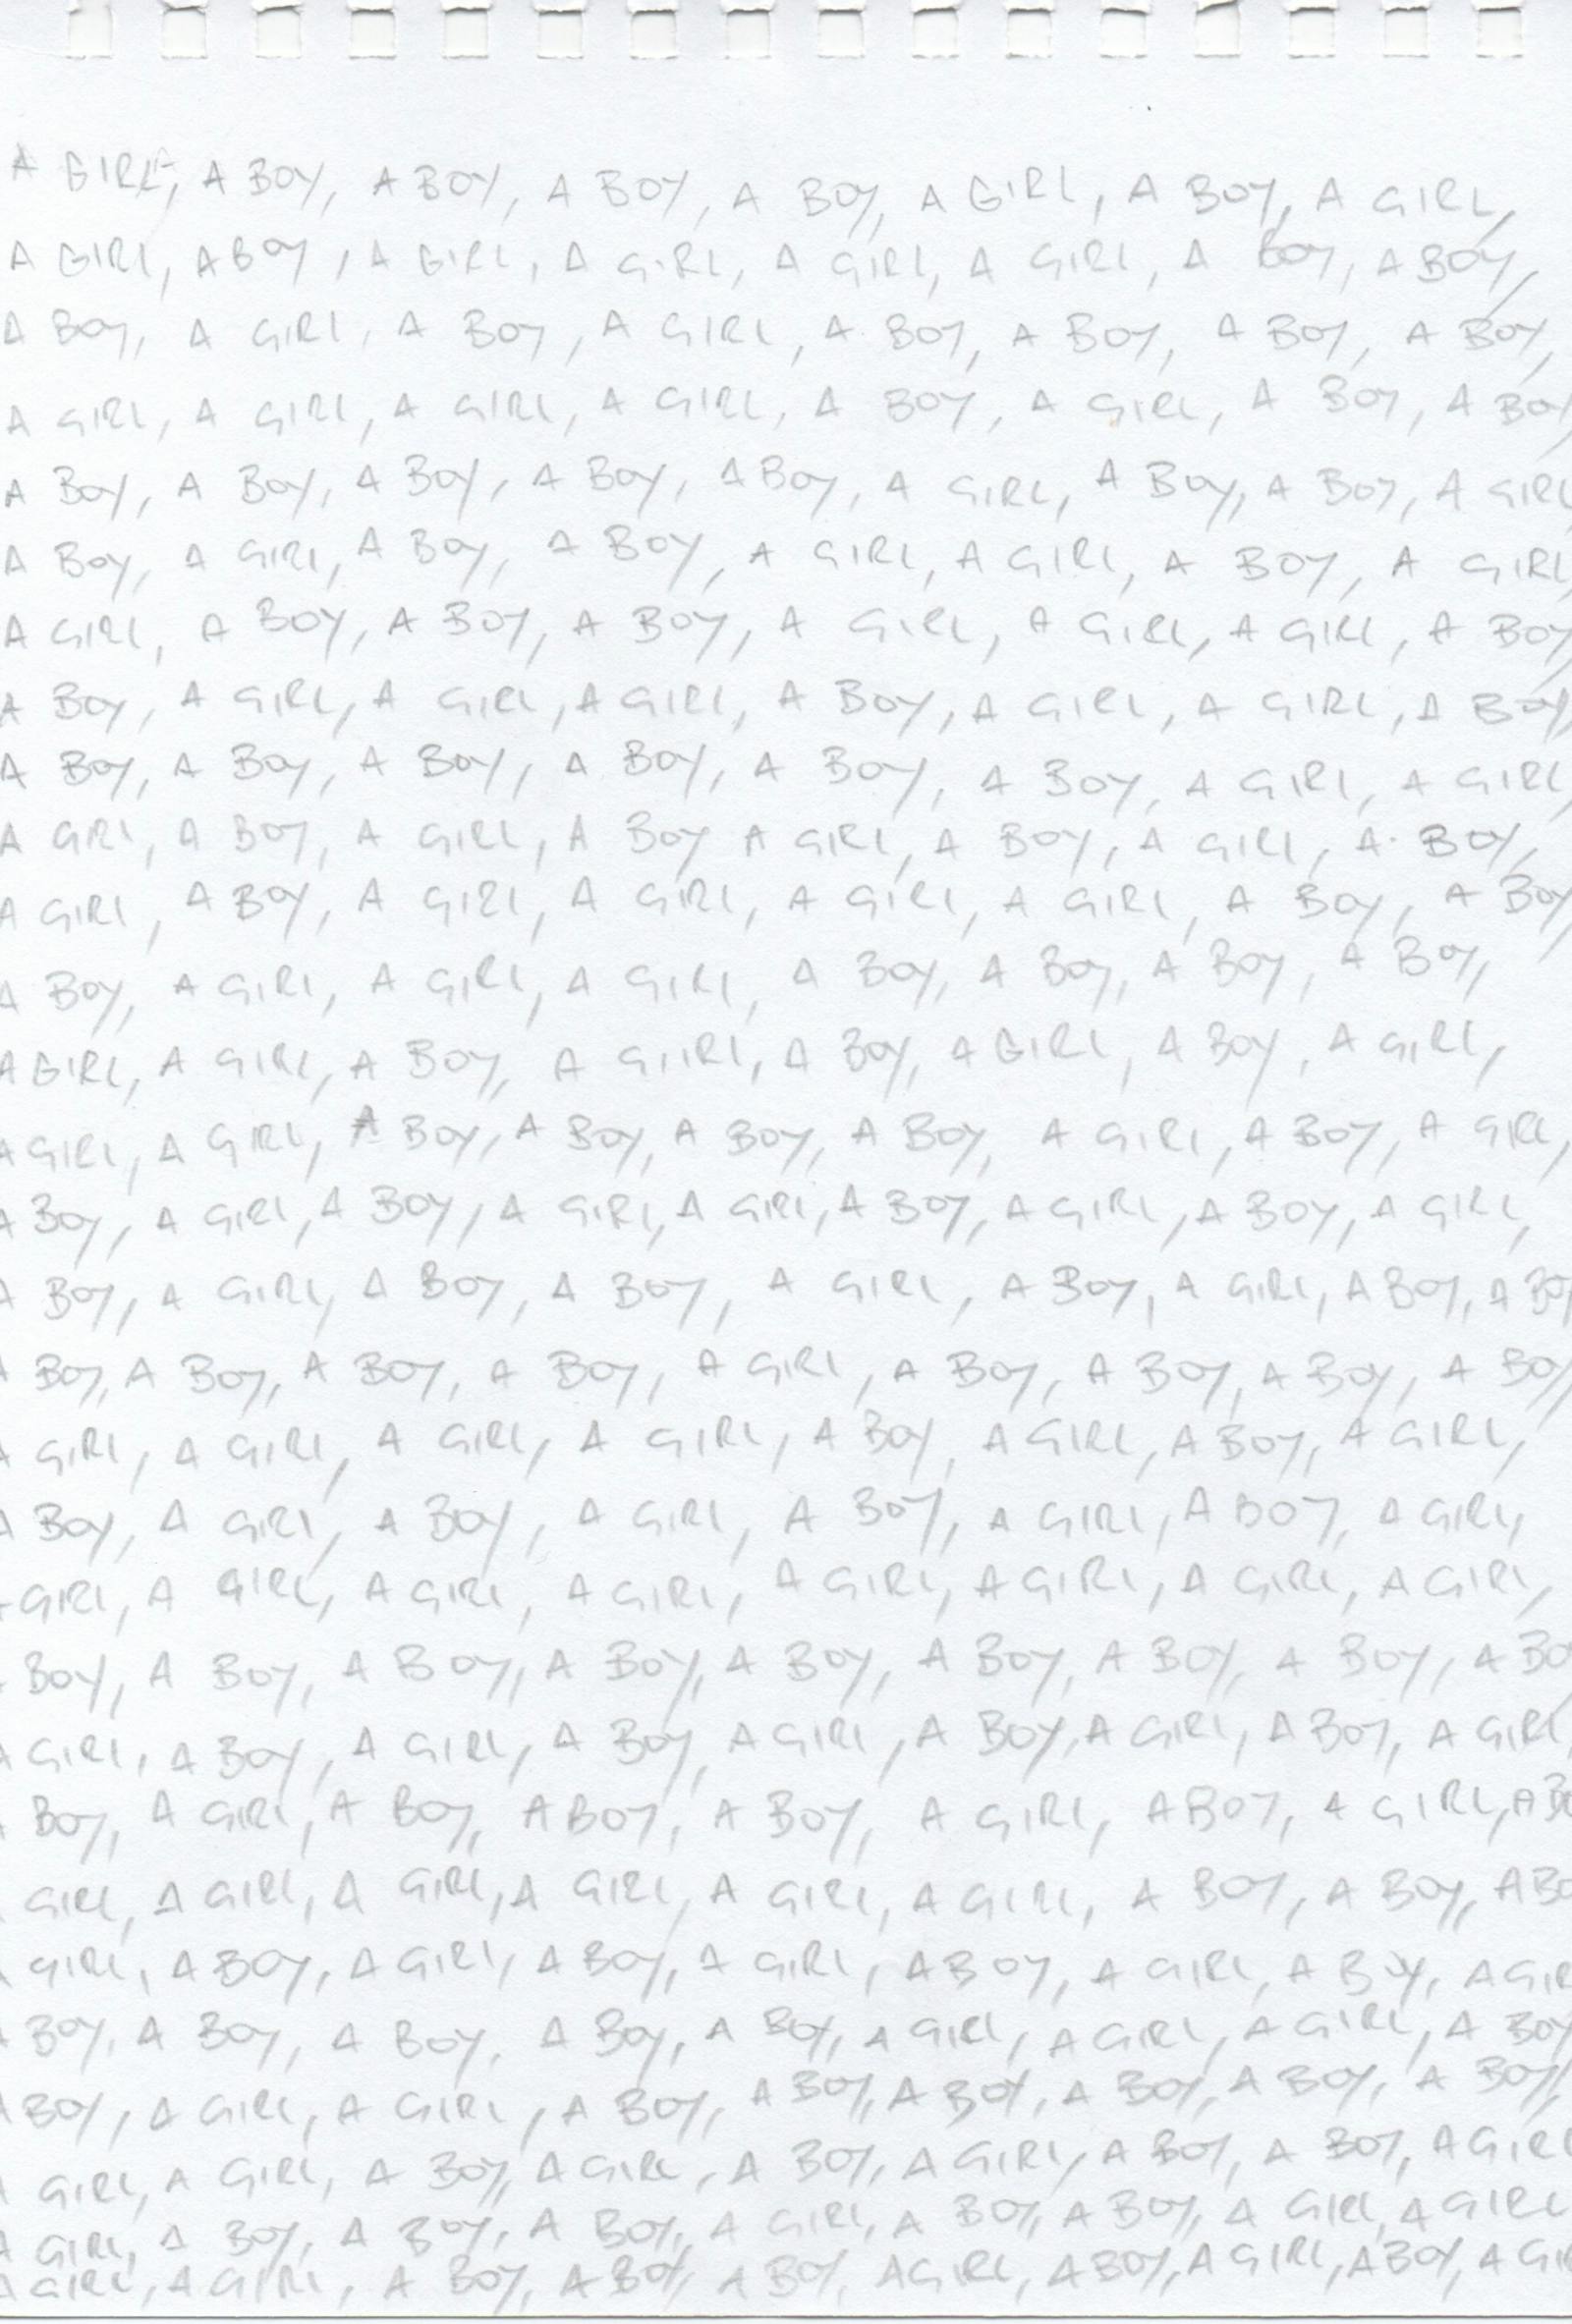 A GIRL, A BOY, A BOY, A BOY, A BOY, A GIRL, A BOY, A GIRL,
A GIRL, A BOY, A GIRL, A GIRL, A GIRL, A GIRL, A BOY, A BOY,
A BOY, A GIRL, A BOY, A GIRL, A BOY, A BOY, A BOY, A BOY,
A GIRL, A GIRL, A GIRL, A GIRL, A BOY, A GIRL, A BOY, A BOY
A BOY, A BOY, A BOY, A BOY, A BOY, A GIRL, A BOY, A BOY, A GIRL
A BOY, A GIRL, A BOY, A BOY, A GIRL, A GIRL, A BOY, A GIRL,
A GIRL, A BOY, A BOY, A BOY, A GIRL, A GIRL, A GIRL, A BOY,
A BOY, A GIRL, A GIRL, A GIRL, A BOY, A GIRL, A GIRL, A BOY,
A BOY, A BOY, A BOY, A BOY, A BOY, A BOY, A GIRL, A GIRL,
A GIRL, A BOY, A GIRL, A BOY A GIRL, A BOY, A GIRL, A BOY,
A GIRL, A BOY, A GIRL, A GIRL, A GIRL, A GIRL, A BOY, A BOY,
A BOY, A GIRL, A GIRL, A GIRL, A BOY, A BOY, A BOY, A BOY,
A GIRL, A GIRL, A BOY, A GIIRL, A BOY, A GIRL, A BOY, A GIRL,
A GIRL, A GIRL, A BOY, A BOY, A BOY, A BOY, A GIRL, A BOY, A GIRL,
A BOY, A GIRL, A BOY, A GIRL, A GIRL, A BOY, A GIRL, A BOY, A GIRL,
A BOY, A GIRL, A BOY, A BOY, A GIRL, A BOY, A GIRL, A BOY, A BOY
A BOY, A BOY, A BOY, A BOY, A GIRL, A BOY, A BOY, A BOY, A BOY,
A GIRL, A GIRL, A GIRL, A GIRL, A BOY, A GIRL, A BOY, A GIRL,
A BOY, A GIRL, A BOY, A GIRL, A BOY, A GIRL, A BOY, A GIRL,
GIRL, A GIRL, A GIRL, A GIRL, A GIRL, A GIRL, A GIRL, A GIRL,
BOY, A BOY, A BOY, A BOY, A BOY, A BOY, A BOY, A BOY, A BO
A GIRL, A BOY, A GIRL, A BOY, A GIRL, A BOY, A GIRL, A BOY, A GIRL,
BOY, A GIRL, A BOY, A BOY, A BOY, A GIRL, A BOY, A GIRL, A BO
GIRL, A GIRL, A GIRL, A GIRL, A GIRL, A GIRL, A BOY, A BOY, A BO
GIRL, A BOY, A GIRL, A BOY, A GIRL, A BOY, A GIRL, A BOY, A GIR
BOY, A BOY, A BOY, A BOY, A BOY, A GIRL, A GIRL, A GIRL, A BOY
A BOY, A GIRL, A GIRL, A BOY, A BOY, A BOY, A BOY, A BOY, A BOY,
GIRL, A GIRL, A BOY, A GIRL, A BOY, A GIRL, A BOY, A BOY, A GIRL
A GIRL, A BOY, A BOY, A BOY, A GIRL, A BOY, A BOY, A GIRL, A GIRL
A GIRL, A GIRL, A BOY, A BOY, A BOY, A GIRL, A BOY, A GIRL, A BOY, A GIR